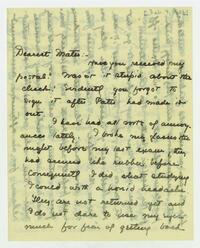 Dearest Mater:-
Have you received my
postal? Wasn't it stupid about the
check? Evidently you forgot to
sign it after Pater had made it
out.
I have had all sorts of annoy-
ances lately. I broke my glasses the
night before my last exam
had
before.
Consequently I did about studying
I could with a horrid headache.
They are not returned yet and
I do not dare to use my eyes
much for fear of getting bad